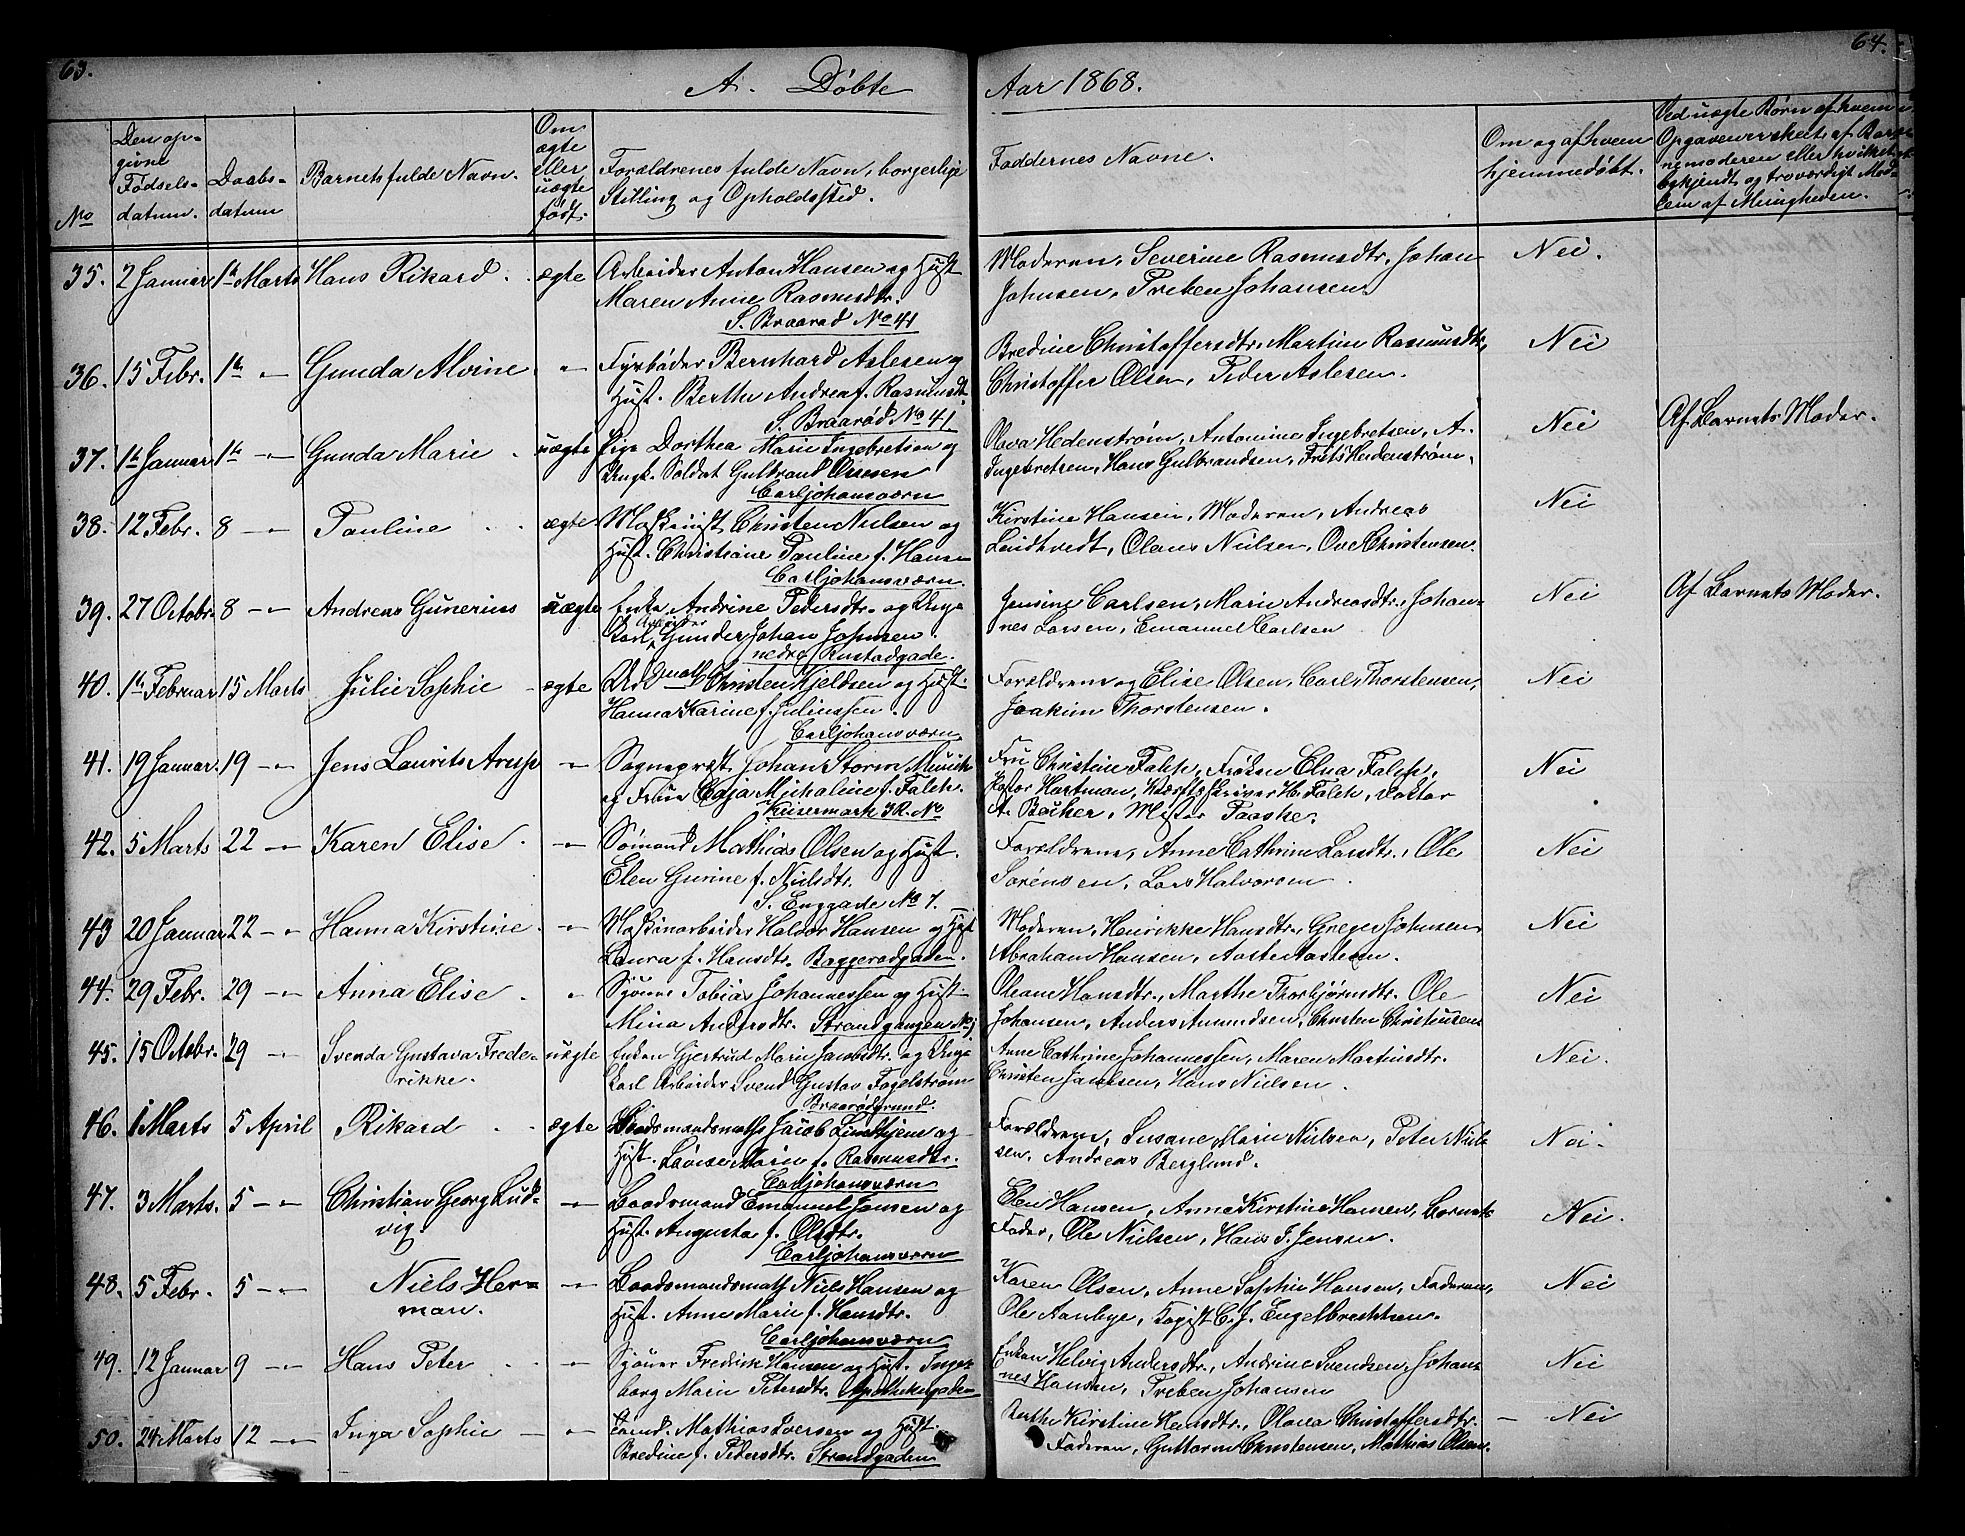 63.
64.
A. Døbte
Aar 1868.
No
Den op-
givne
Fødsels-
datum.
Daabs-
datum
Barnets fulde Navn.
Om
ægte
eller
uægte
født.
Forældrenes fulde Navn, borgerlige
Stilling og Opholdssted.
Faddernes Navne.
Om og af hvem
hjemmedøbt.
Ved uægte Børn af hvem
Opgaven er skeet, af Bar-
nemoderen eller hvilket
bekjendt og troværdigt Med-
lem af Menigheden.
35. 2 Januar 1ste Marts Hans Rikard. ægte Arbeider Anton Hansen og Hust
Maren Anne Rasmusdtr.
S. Braarød No 41
Moderen, Severine Rasmusdtr, Johan
Johnsen, Preben Johansen.
Nei.
36. 15 Febr. 1ste -"- Gunda Alvine. -"- Fyrbøder Bernhard Aslesen og
Hust. Berthe Andrea f. Rasmusdt.
S. Braarød No 41
Bredine Christoffersdtr, Martine Rasmusdtr,
Christoffer Olsen, Peder Aslesen.
Nei
37. 1ste Januar 1ste -"- Gunda Marie. uægte Pige Dorthea Marie Ingebretsen og
Ungk. Soldat Gulbrand Olsesen
Carljohansværn
Olava Hedenstrøm, Antonine Ingebretsen, A.
Ingebretsen, Hans Gulbrandsen, Frits Hedenstrøm.
Nei
Af Barnets Moder.
38. 12 Febr. 8 -"- Pauline ægte Maskinist Christen Nielsen og
Hust. Christiane Pauline f. Hansen
Carljohansværn.
Kirstine Hansen, Moderen, Andreas
Lindtvedt, Olaus Nielsen, Ove Christensen.
Nei
39. 27 Octobr. 8 -"- Andreas Gunerius uægte Enke Andrine Pedersdtr. og Unge
Karl, Arbeider Gunder Johan Johnsen.
nedre Rustadgade.
Jensine Carlsen, Marie Andreasdtr., Johan-
nes Larsen, Emanuel Carlsen
Nei
Af Barnets Moder.
40. 1ste Februar 15 Marts Julie Sophie - ægte Christen Kjeldsen og Hust.
Hanna Karine f. Juliussen.
Carljohansværn
Forældrene og Elise Olsen, Carl Thorstensen,
Joakim Thorstensen.
Nei
41. 19 Januar. 19 -"- Jens Laurits Arup -"- Sognepræst Johan Storm Munch
og Frue Edja Michaline f. Falch.
Fru Christine Falch, Frøken Elna Falch,
Pastor Hartman, H. Falch, Doktor
A. Backer, Mister Paaske.
Nei
42. 5 Marts 22 -"- Karen Elise. -"- Sømand Mathias Olsen og Hust.
Elen Gurine f. Nielsdtr.
S. Enggade No 7.
Forældrene, Anne Cathrine Larsdtr., Ole
Sørensen, Lars Halvorsen.
Nei
43 20 Januar 22 -"- Hanna Kirstine. -"- Maskinarbeider Haldor Hansen og Hust
Laura f. Hansdtr. Baggerødgaden.
Moderen, Henrikke Hansdtr., Gregers Johnsen
Abraham Hansen,
Nei
44. 29 Febr. 29 -"- Anna Elise. " Sjømd Tobias Johannessen og Hust.
Mina Andersdtr. Strandgangen
Oleane Hansdtr., Marthe Thorbjørnsdtr. Ole
Johansen, Anders Amundsen, Christen Christiansen.
Nei
45. 15 Octobr. 29 -"- Svenda Gustava Frede-
rikke. uægte Enken Gjertrud Marie Jacobsdtr. og Unge
Karl Arbeider Svend Gustav Fogelstrøm
Braarødgrund.
Anne Cathrine Johannessen, Maren Martinsdtr.
Christen Jacobsen, Hans Nielsen.
Nei.
46. 1 Marts 5 April Rikard ægte Baadsmandsmath Jacob Lindhjem og
Hust. Lovise Marie f. Rasmusdtr.
Carljohansværn
Forældrene, Susane Marie Nielsen, Peter Niel-
sen, Andreas Berglund.
Nei.
47. 3 Marts. 5 -"- Christian Georg Lud-
vig. -"- Baadsmand Emanuel Jansen og
Hust. Augusta f. Olsdtr.
Carljohansværn
Elen Hansen, Anne Kirstine Hansen, Barnets
Fader, Ole Nielsen, Hans J. Jensen.
Nei.
48. 5 Febr. 5 -"- Niels Her-
man. -"- Baadsmandsmath Niels Hansen og
Hust. Anne Marie f. Hansdtr.
Carljohansværn
Karen Olsen, Anne Sophie Hansen, Faderen,
Ole Aanbye, C. J. Engelbrechtsen.
Nei
49. 12 Januar 9 -"- Hans Peter -"- Fredrik Hansen og Hust. Inge-
borg Marie Petersdtr. Apothekergaden
Enken Helvig Andersdtr., Andrine Svendsen, Johan-
nes Hansen, Preben Johansen
Nei
50. 24 Marts 12 -"- Inga Sophie -"- Tømd. Mathias Iversen og Hust.
Bredine f. Pedersdtr. Strandgaden
Anthe Kirstine Hansdtr., Olava Christoffersdtr. -
Faderen, Guttorm Christensen, Mathias Olsen.
Nei